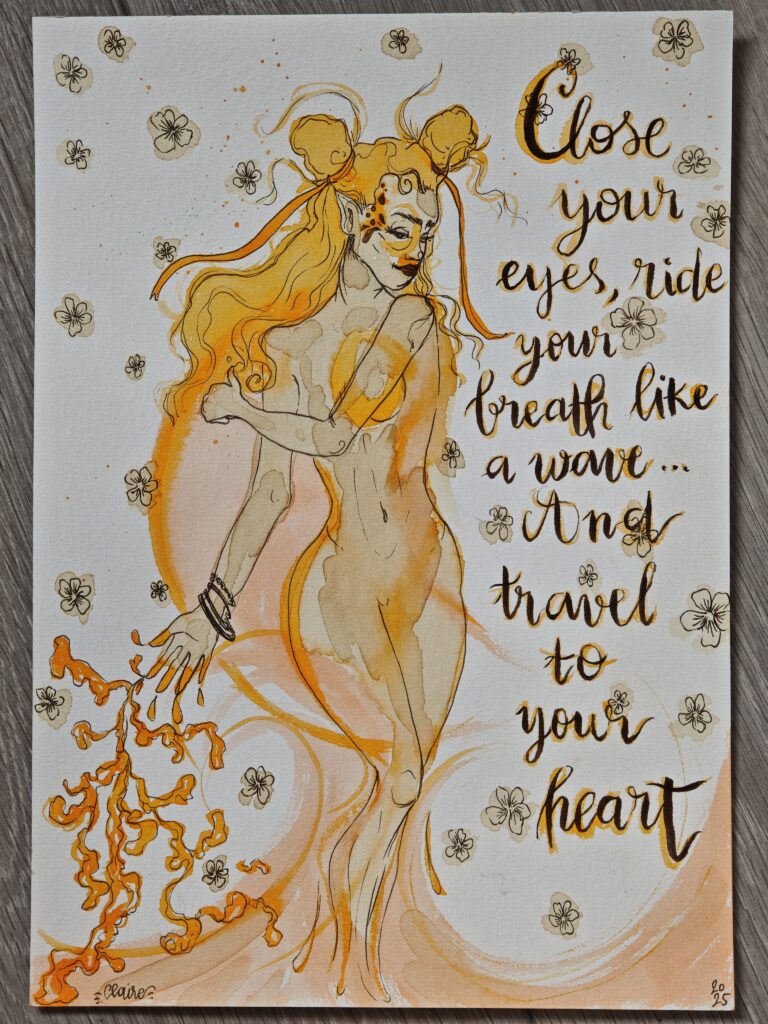 Close
your
eyes, ride
your
breath like
a wave...
And
travel
to
your
heart
Claire
20
25